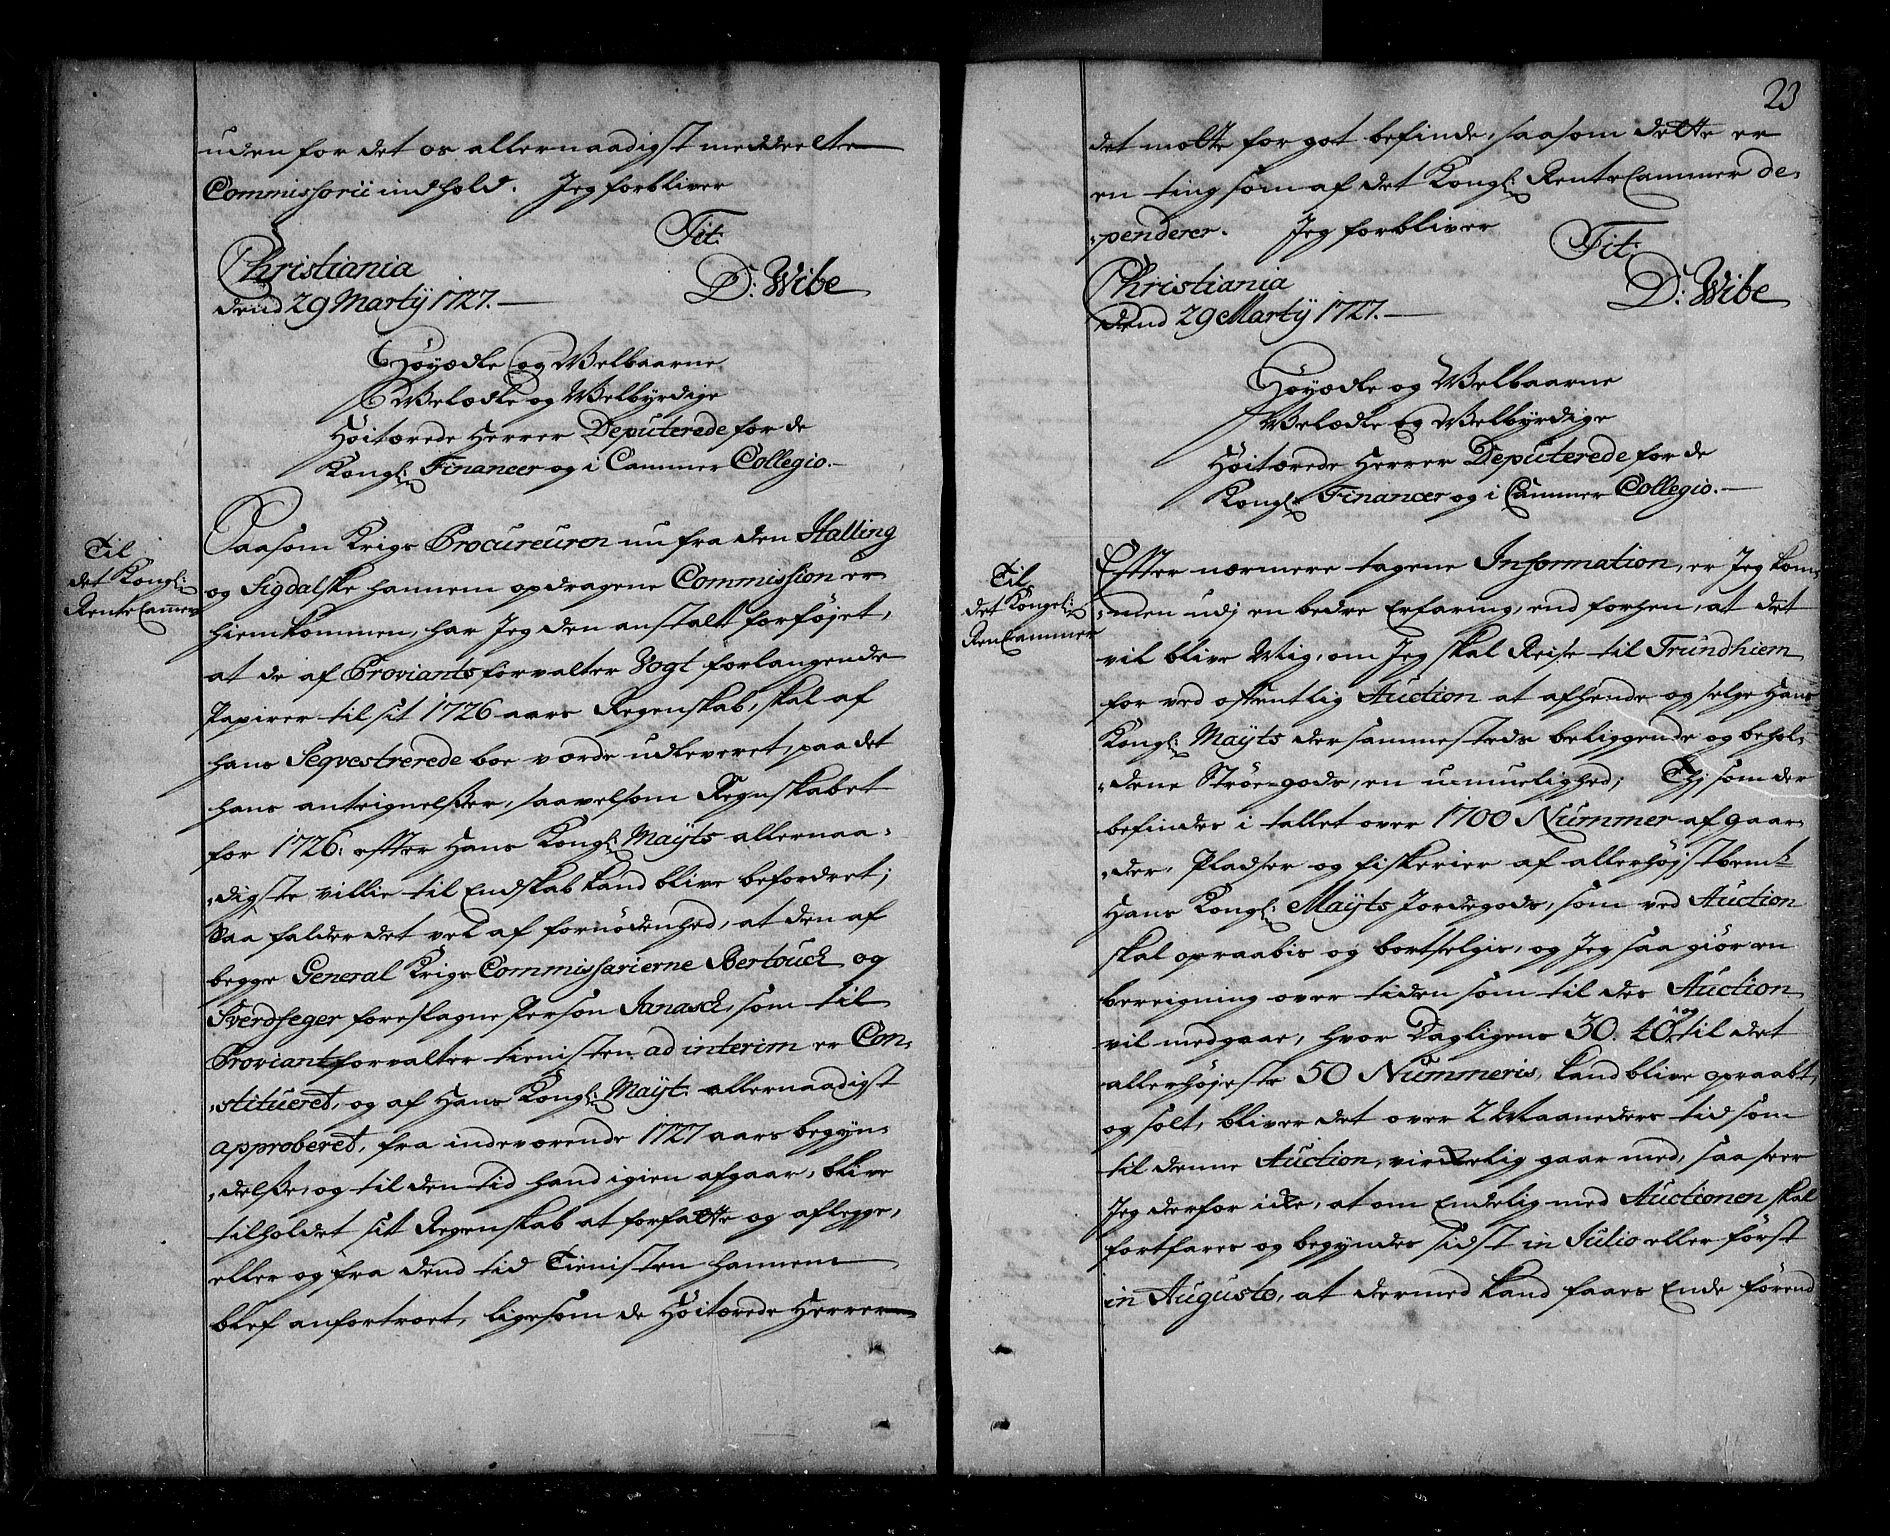 uden for det os allernaadigst meddeelte
Commissorii indhold. Jeg forbliver
Tit:
Christiania
dend 29 Martij 1727.
D: Wibe
Höyædle og Welbaarne
Welædle og Welbyrdige
Höitærede Herrer Deputerede for de
Kongl: Financer og i Cammer Collegio.
Til
det Kongl:
Rente Cammer
Saasom Krigs Procureuren nu fra den Halling
og Sigdalske hannem opdragene Commission er
hiemkommen, har Jeg den anstalt forföjet,
at de af Proviantsforvalter Vogt forlangende
Papirer til sit 1726 aars Regenskab, skal af
hans Seqvestrerede boe vorde udleveret, paa det
hans anteignelßer, saavelsom Regnskabet
for 1726. efter Hans Kongl: Mayts allernaa-
digste villie til Endskab kand blive befordret;
Saa falder det vel af fornödenhed, at den af
begge General Krigs Commissarierne Bertouch og
Sverdfeger foreslagne Person Janasch, som til
Proviantforvalter tienisten ad interim er Con-
stitueret, og af Hans Kongl: Mayt: allernaadigst
approberet, fra indeværende 1727 aars begyn-
delße, og til den tid hand igien afgaar, blive
tilholdet sit Regenskab at forfatte og aflegge,
eller og fra dend tid Tienisten hannem
blef anfortroet, ligesom de Höitærede Herrer
23
det motte for got befinde, saasom dette er
en ting som af det Kongl: Rente Cammer de-
penderer. Jeg forbliver
Tit:
Christiania
dend 29 Martij 1727.
D: Wibe
Höyædle og Welbaarne
Velædle og Welbyrdige
Höitærede Herrer Deputerede for de
Kongl: Financer og i Cammer Collegio.
Til
det Kongel:
Ren Cammer
Effter nærmere tagene Information, er Jeg kom-
men udj en bedre Erfaring, end forhen, at det
vil blive Mig, om Jeg skal Reise til Trundhiem
for ved offentlig Auction at afhende og selge Hans
Kongl: Mayts der sammesteds beliggende og behol-
dene Ströe-gods, en uemuelighed; Thj som der
befindes i tallet over 1700 Nummer af gaar-
der, Pladser og fiskerier af allerhöjstbemt
Hans Kongl: Mayts Jordegods, som ved Auction
skal opraabis og bortselgis, og Jeg saa giör en
bereigning over tiden som til des Auction
vil medgaae, hvor Dagligens 30. 40. og til det
allerhöjeste 50 Nummeris, kand blive opraabt,
og solt, bliver det over 2 Maaneders tid som
til denne Auction, virkelig gaar med, saa seer
Jeg derfor ikke, at om Endelig med Auctionen skal
fortfares og begyndes sidst in Julio eller först
in Augusto, at dermed kand faaes Ende förend